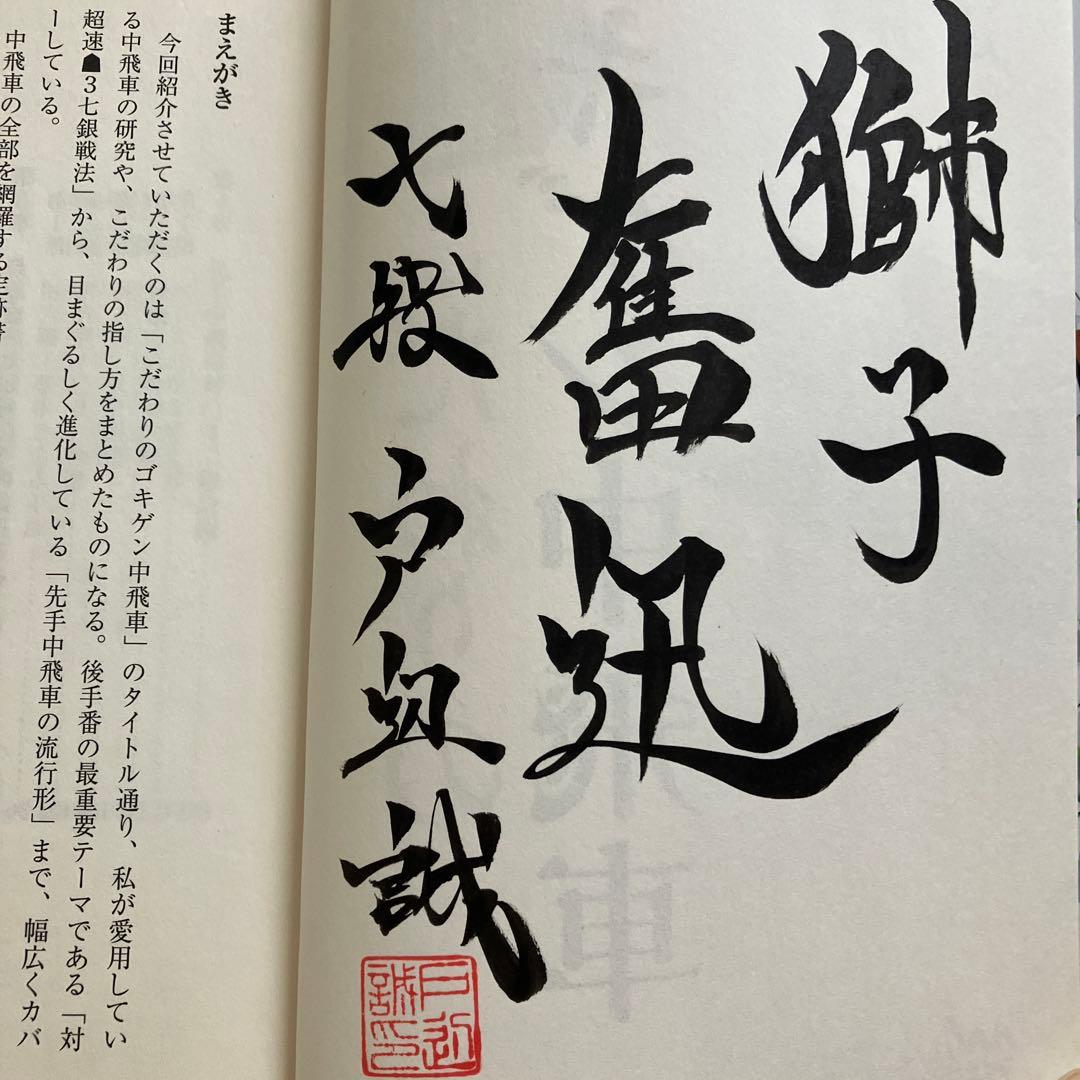 獅子
奮迅
七段 戸辺誠
戸辺
誠印
まえがき
今回紹介させていただくのは「こだわりのゴキゲン中飛車」のタイトル通り、私が愛用してい
る中飛車の研究や、こだわりの指し方をまとめたものになる。後手番の最重要テーマである「対
超速☗3七銀戦法」から、目まぐるしく進化している「先手中飛車の流行形」まで、幅広くカバ
ーしている。
中飛車の全部を網羅する定跡書